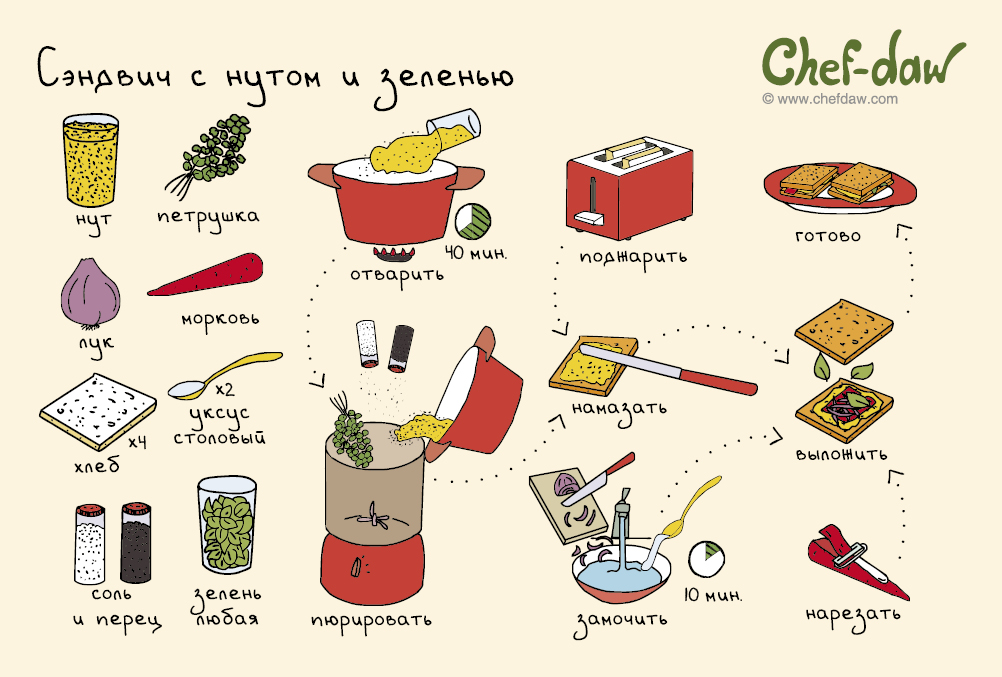 Сэндвич с нутом и зеленью
Chef-daw
© www.chefdaw.com
нут
петрушка
лук
морковь
x4
хлеб
x2
уксус
столовый
соль
и перец
зелень
любая
40 мин.
отварить
пюрировать
поджарить
намазать
10 мин.
замочить
готово
выложить
нарезать